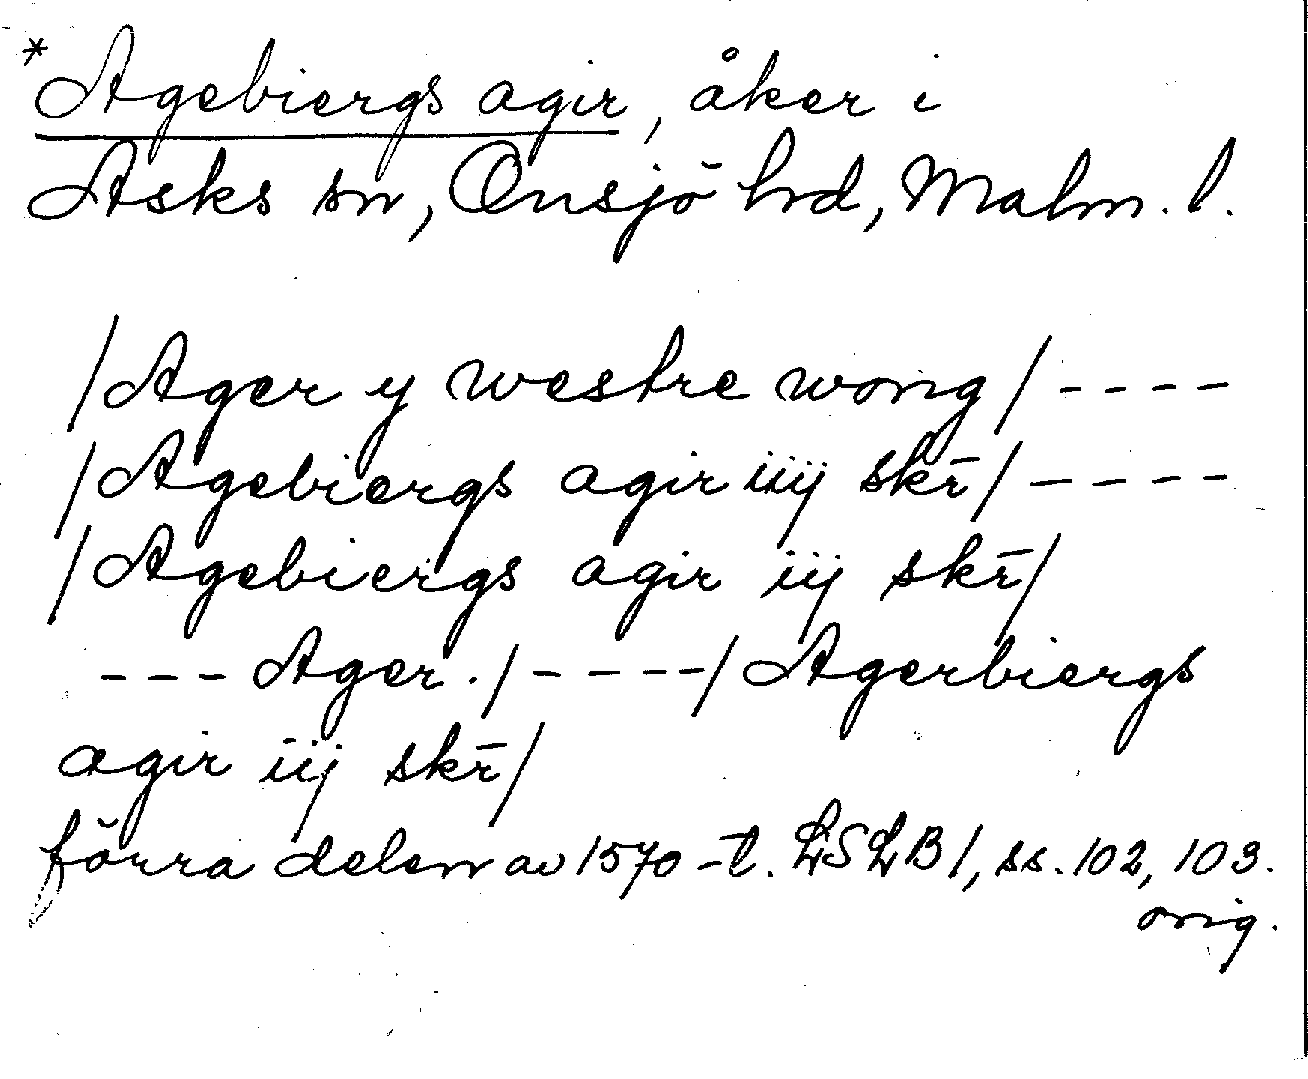 *Agebiergs agir, åker i
Asks sn, Onsjö hrd, Malm. l.
/Ager y westre wong/ ----
/Agebiergs agir iiij skr̄/ ----
/Agebiergs agir iij skr̄/
--- Ager./ ----/ Agerbiergs
agir iij skr̄/
förra delen av 1570-t. LSLB 1, ss. 102, 103.
orig.